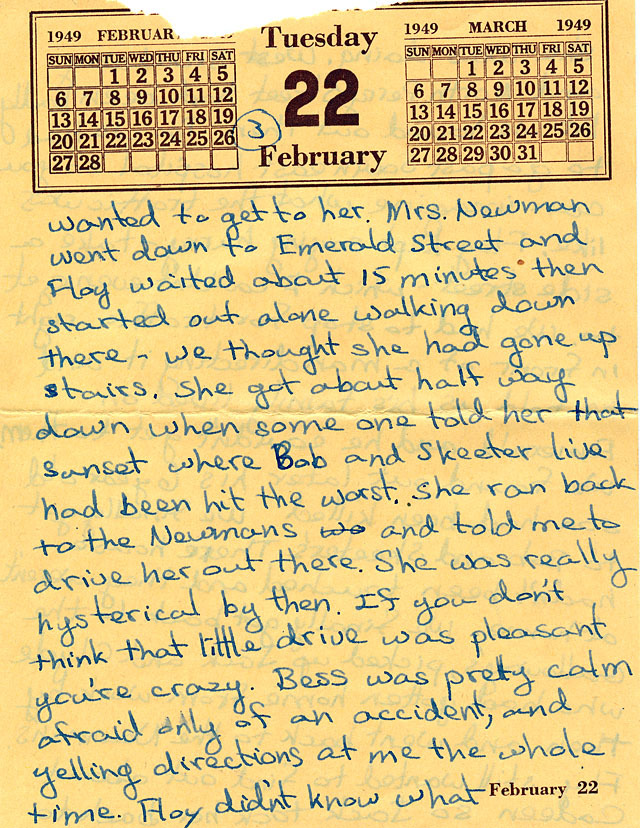 1949 FEBRUARY 1949
SUN MON TUE WED THU FRI SAT
1 2 3 4 5
6 7 8 9 10 11 12
13 14 15 16 17 18 19
20 21 22 23 24 25 26
27 28
Tuesday
22
3
February
1949 MARCH 1949
SUN MON TUE WED THU FRI SAT
1 2 3 4 5
6 7 8 9 10 11 12
13 14 15 16 17 18 19
20 21 22 23 24 25 26
27 28 29 30 31
wanted to get to her. Mrs. Newman
went down to Emerald Street and
Floy waited about 15 minutes then
started out alone walking down
there - we thought she had gone up
stairs. She got about half way
down when some one told her that
sunset where Bob and Skeeter live
had been hit the worst. She ran back
to the Newmans and told me to
drive her out there. She was really
hysterical by then. If you don't
think that little drive was pleasant
you're crazy. Bess was pretty calm
afraid only of an accident, and
yelling directions at me the whole
time. Floy didn't know what
February 22